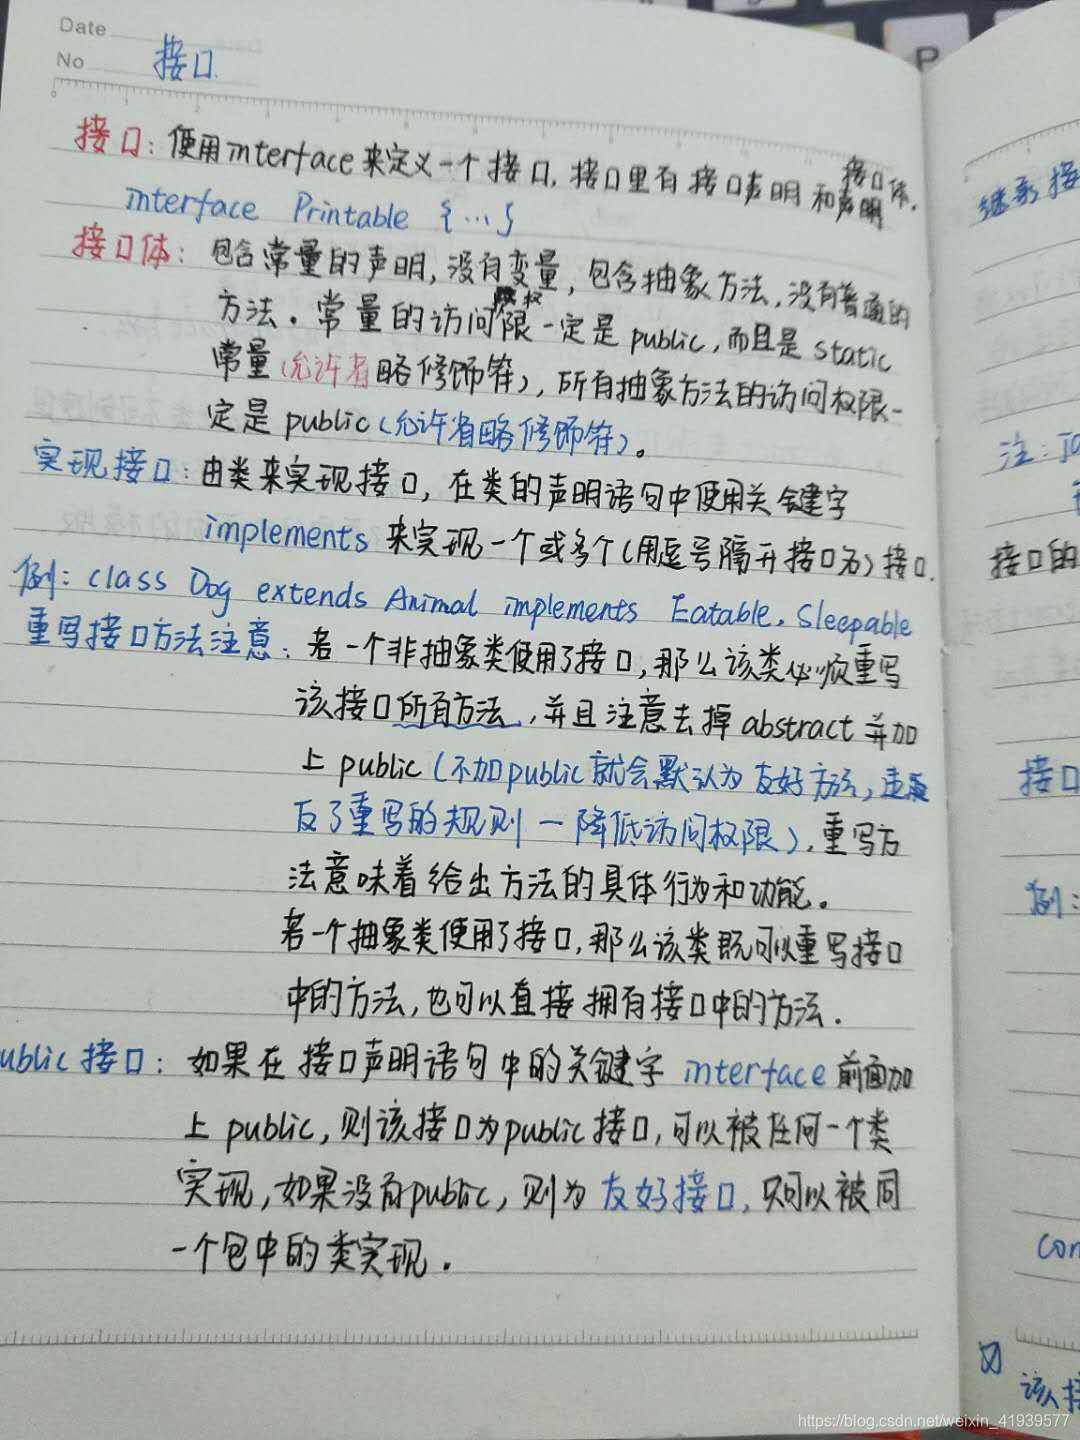 Date
No 接口
接口：使用interface来定义一个接口，接口里有接口声明和声明接口体.
interface Printable {…}
接口体：包含常量的声明，没有变量，包含抽象方法，没有普通的
方法。常量的访问权限一定是public，而且是static
常量(允许省略修饰符)，所有抽象方法的访问权限一
定是public(允许省略修饰符)。
实现接口：由类来实现接口，在类的声明语句中使用关键字
implements来实现一个或多个(用逗号隔开接口名)接口.
例：class Dog extends Animal implements Eatable, Sleepable
重写接口方法注意：若一个非抽象类使用了接口，那么该类必须重写
该接口所有方法，并且注意去掉abstract并加
上public(不加public就会默认为友好方法，违
反了重写的规则一降低访问权限)，重写方
法意味着给出方法的具体行为和功能.
若一个抽象类使用了接口，那么该类既可以重写接口
中的方法，也可以直接拥有接口中的方法.
ublic接口：如果在接口声明语句中的关键字interface前面加
上public，则该接口为public接口，可以被任何一个类
实现，如果没有public，则为友好接口，只可以被同
一个包中的类实现.
继承接
注：
接口的
接口
例：
con
该接
P
https://blog.csdn.net/weixin_41939577